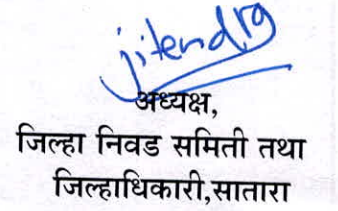 jitendra
अध्यक्ष,
जिल्हा निवड समिती तथा
जिल्हाधिकारी,सातारा